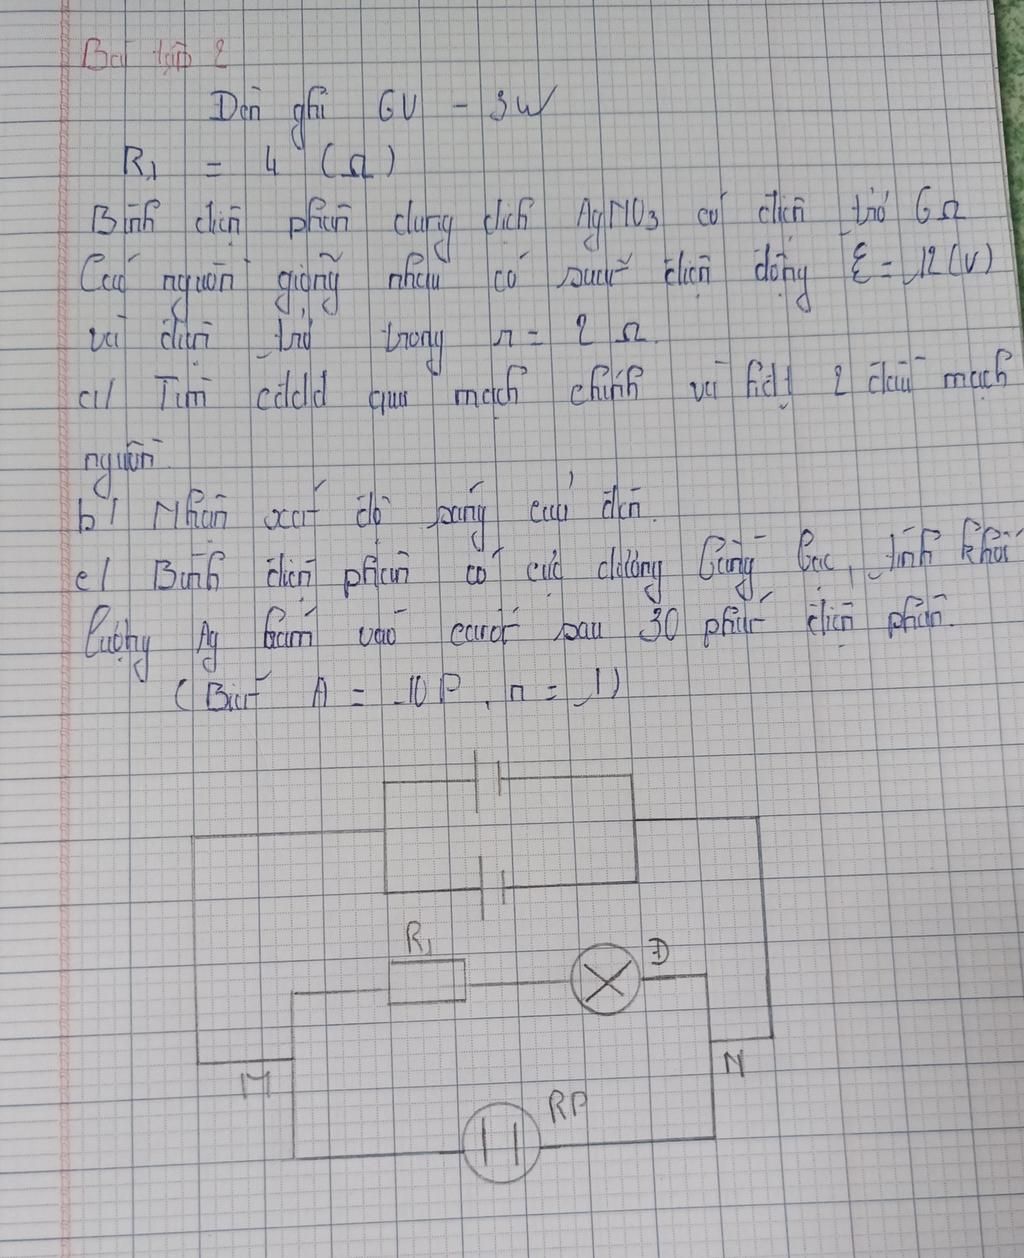 Bài tập 2
Đèn ghi 6V - 3W
R₁ = 4 (Ω)
Bình điện phân dung dịch AgNO₃ có điện trở 6Ω
Các nguồn giống nhau có suất điện động ℰ = 12 (V)
và điện trở trong r = 2 Ω.
a/ Tìm cđdđ qua mạch chính và hđt 2 đầu mạch
nguồn.
b/ Nhận xét độ sáng của đèn.
c/ Bình điện phân có cực dương bằng bạc, tính khối
lượng Ag bám vào catốt sau 30 phút điện phân.
(Biết A = 108, n = 1)
R₁
Đ
M
N
RP